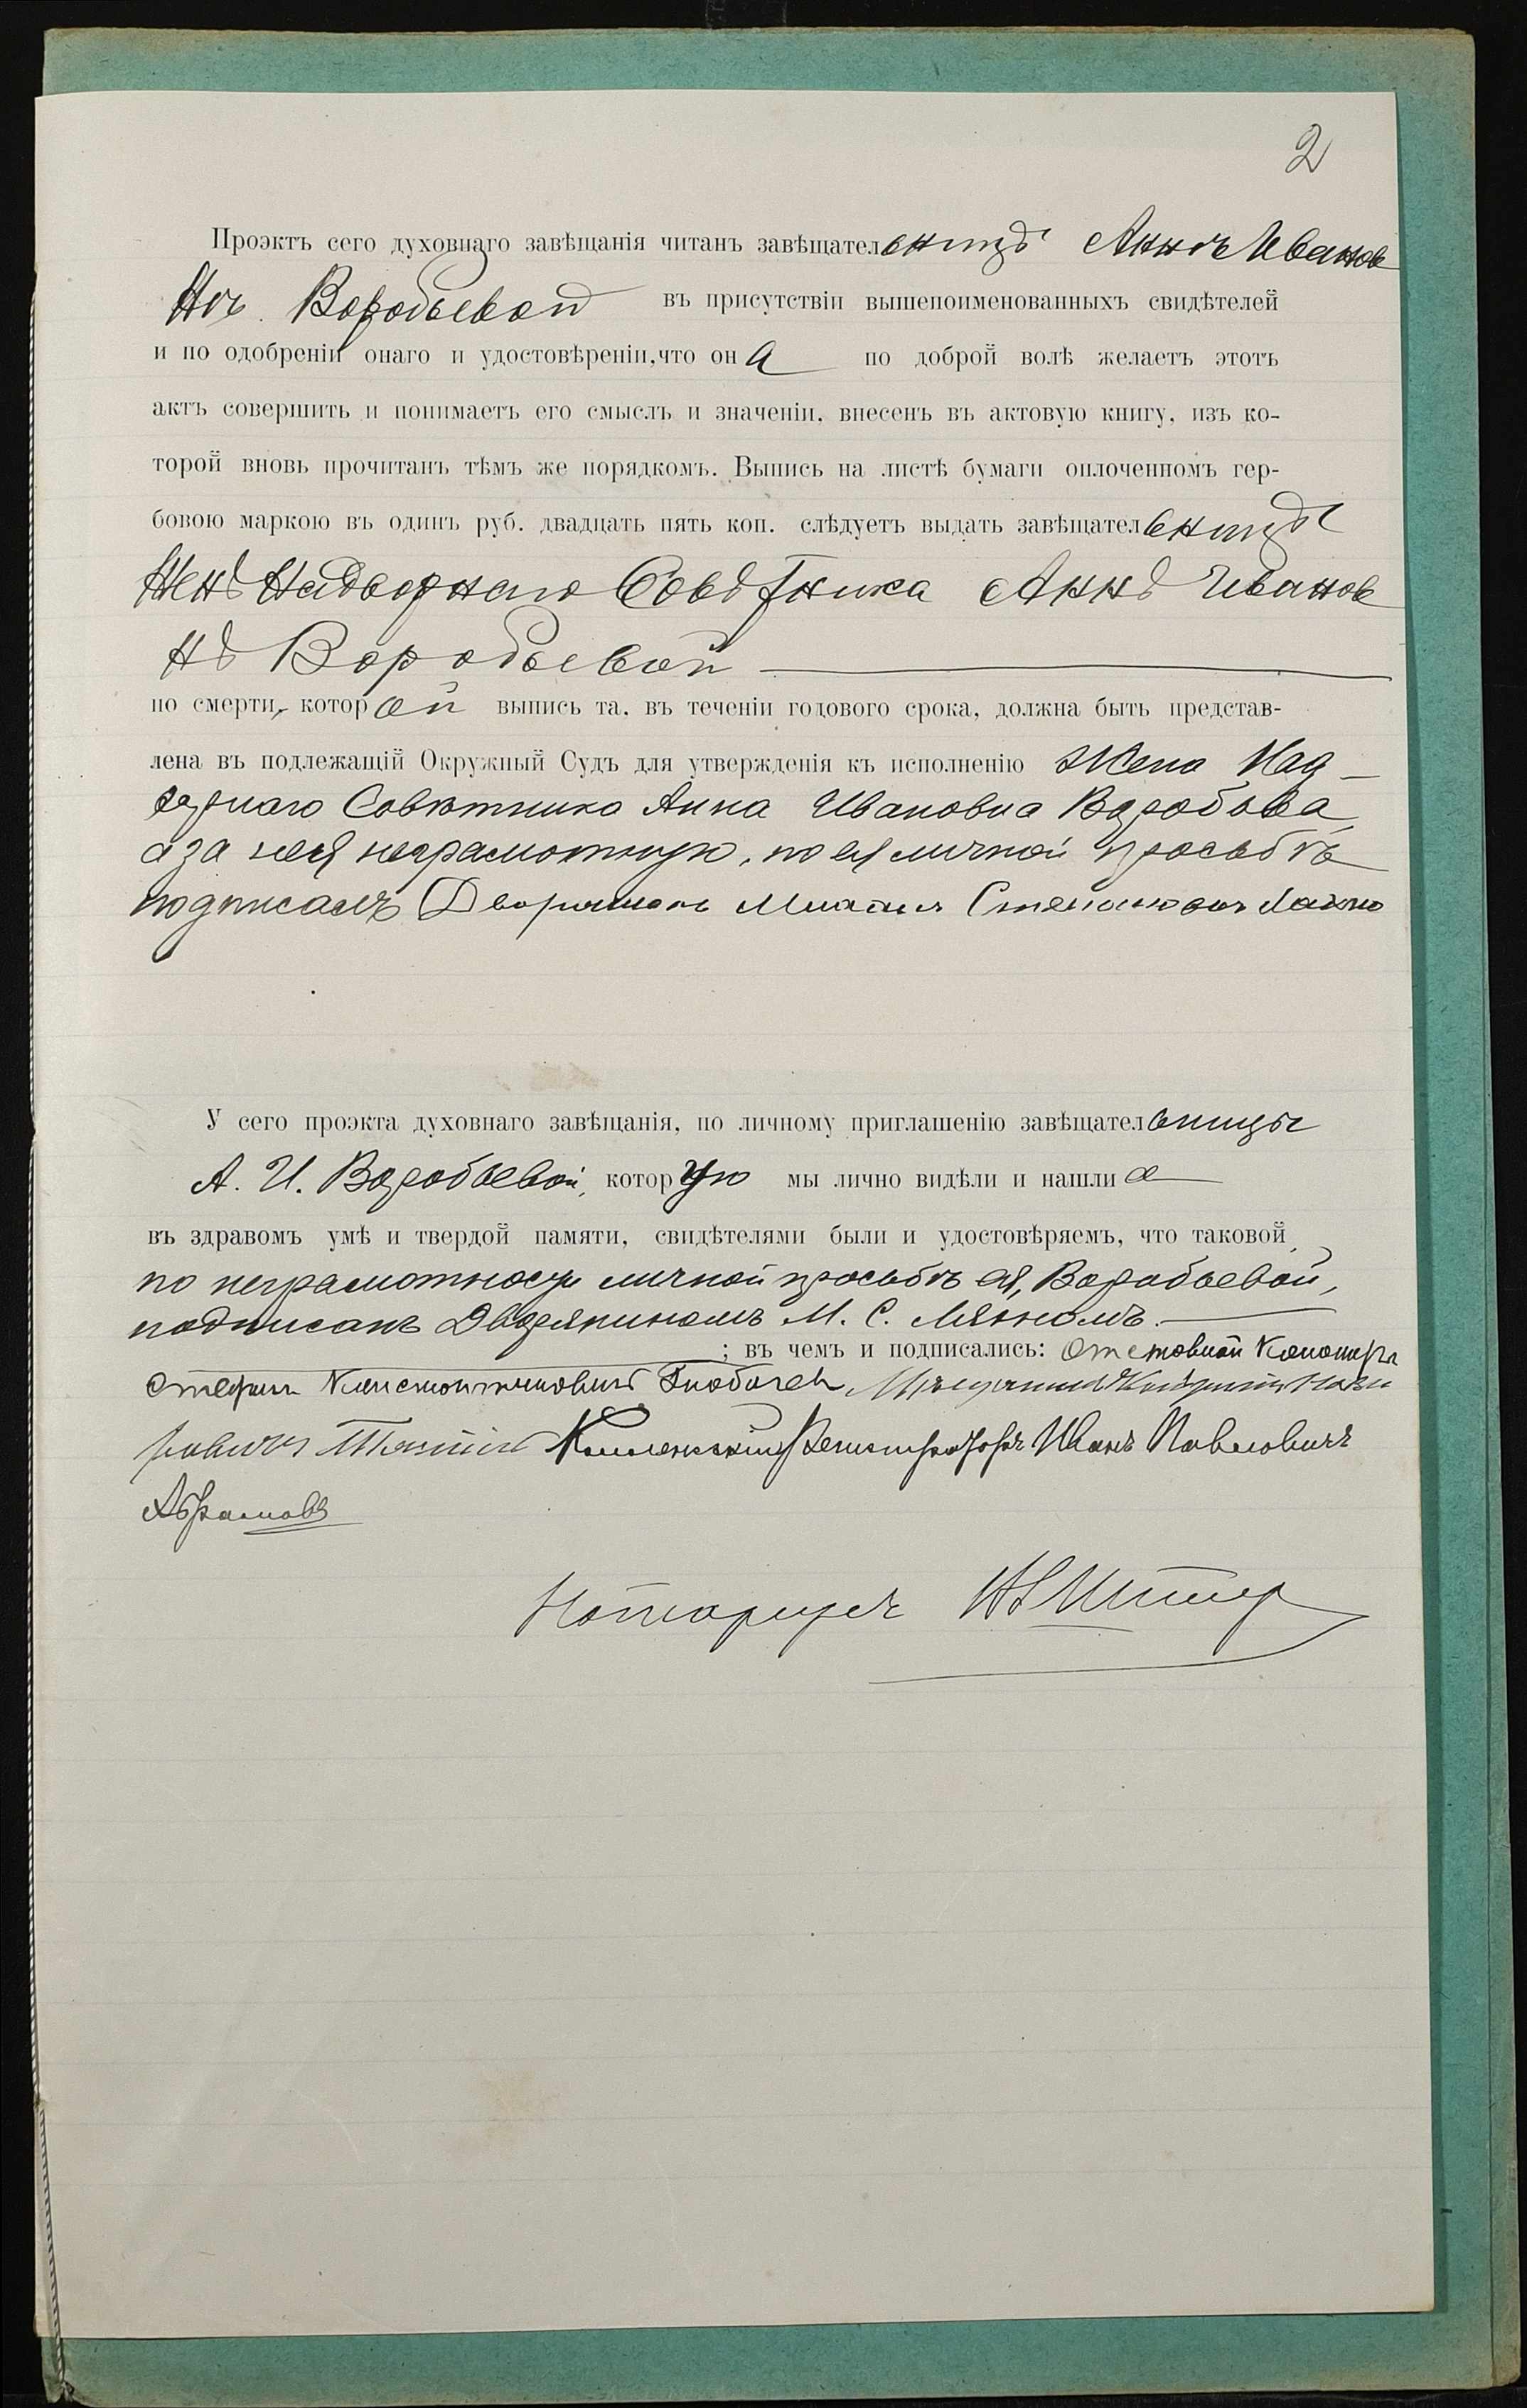 2
Проэктъ сего духовнаго завѣщанія читанъ завѣщательницѣ Аннѣ Иванов
нѣ Воробьевой въ присутствіи вышепоименованныхъ свидѣтелей
и по одобреніи онаго и удостовѣреніи, что она по доброй волѣ желаетъ этотъ
актъ совершить и понимаетъ его смыслъ и значеніи, внесенъ въ актовую книгу, изъ ко-
торой вновь прочитанъ тѣмъ же порядкомъ. Выпись на листѣ бумаги оплоченномъ гер-
бовою маркою въ одинъ руб. двадцать пять коп. слѣдуетъ выдать завѣщательницѣ
Женѣ Надворнаго Совѣтника Аннѣ Иванов
нѣ Воробьевой
по смерти, которой выпись та, въ теченіи годового срока, должна быть представ-
лена въ подлежащій Окружный Судъ для утвержденія къ исполненію Жена Над-
ворнаго Совѣтника Анна Ивановна Воробьева
а за нея неграмотную, по ея личной просьбѣ
подписалъ Дворянинъ Михаилъ Степановичъ
У сего проэкта духовнаго завѣщанія, по личному приглашенію завѣщательницы
А. И. Воробьевой, которую мы лично видѣли и нашли
въ здравомъ умѣ и твердой памяти, свидѣтелями были и удостовѣряемъ, что таковой
по неграмотности личной просьбѣ ея, Воробьевой,
подписанъ Дворяниномъ М. С.
; въ чемъ и подписались: Отставной
Стефанъ Константиновичъ Мѣщанинъ
Коллежскій Регистраторъ Иванъ Павловичъ
Абрамовъ
Нотаріусъ